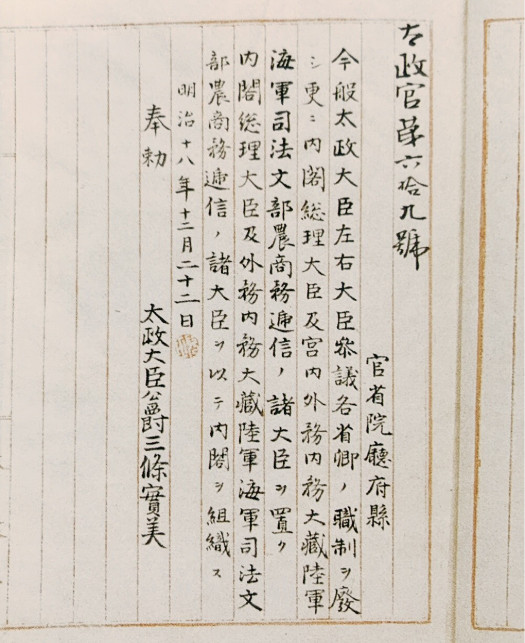 太政官第六拾九號
官省院廳府縣
今般太政大臣左右大臣參議各省卿ノ職制ヲ廢
シ更ニ内閣総理大臣及宮内外務内務大藏陸軍
海軍司法文部農商務逓信ノ諸大臣ヲ置ク
内閣総理大臣及外務内務大藏陸軍海軍司法文
部農商務逓信ノ諸大臣ヲ以テ内閣ヲ組織ス
明治十八年十二月二十二日
奉勅
太政大臣公爵三條實美